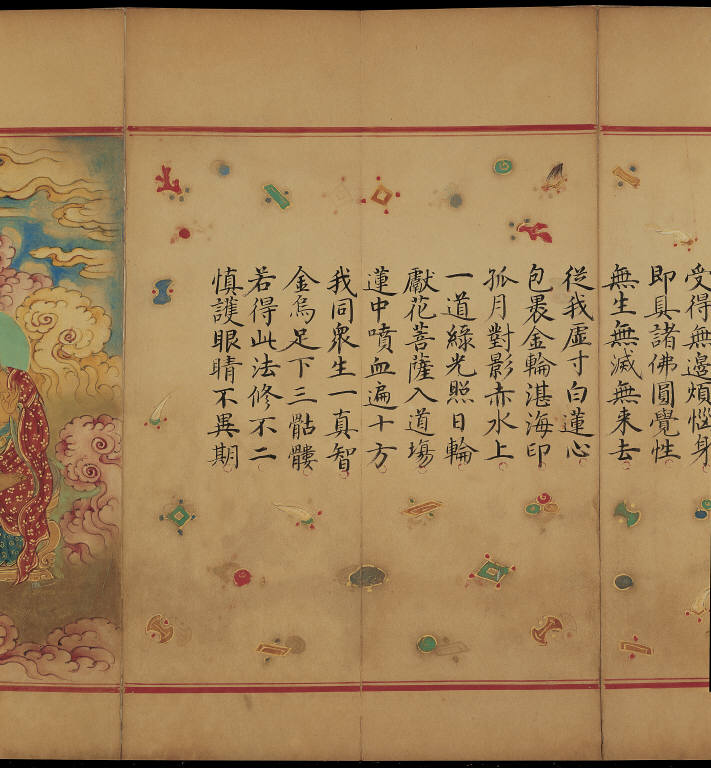 受得無邊煩惱身
即具諸佛圓覺性
無生無滅無来去
從我虛寸白蓮心
包褁金輪湛海印
孤月對影赤水上
一道綠光照日輪
獻花菩薩入道塲
蓮中噴血遍十方
我同眾生一真智
金烏足下三骷髏
若得此法修不二
慎護眼睛不異期